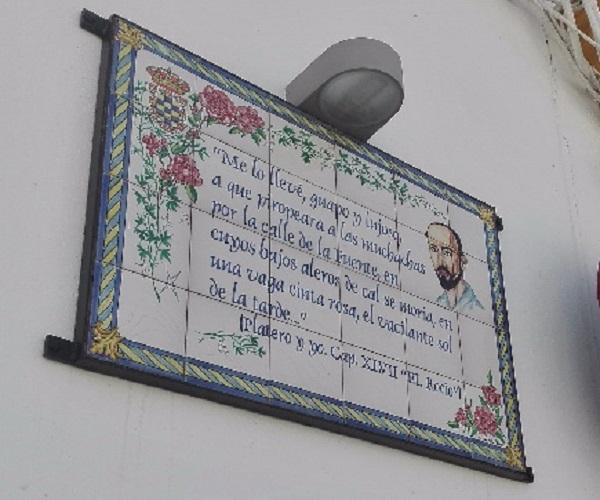 "Me lo llevé, guapo y lujoso,
a que piropeara a las muchachas
por la calle de la Fuente, en
cuyos bajos aleros de cal se moría, en
una vaga cinta rosa, el vacilante sol
de la tarde..."
(Platero y yo. Cap. XLVII "EL Rocío")